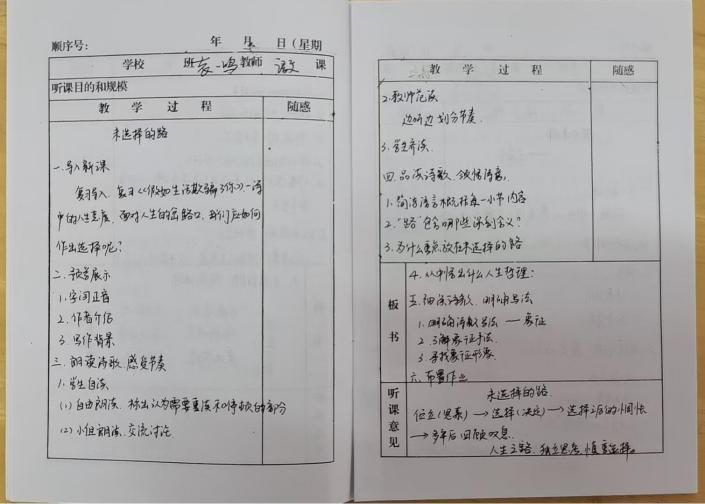 顺序号: 年 月 日(星期
学校 班 袁一鸣 教师 语文 课
听课目的和规模
教 学 过 程 随感
未选择的路
一.导入新课
复习导入,复习《假如生活欺骗了你》一诗
中的人生态度,面对人生的岔路口,我们应如何
作出选择呢?
二.预习展示
1.字词正音
2.作者介绍
3.写作背景
三.朗读诗歌,感受节奏
1.学生自读
(1)自由朗读,标出认为需要重读和停顿的部分
(2)小组朗读,交流讨论.
教 学 过 程 随感
2.教师范读
边听边划分节奏.
3.学生齐读.
四.品读诗歌,领悟诗意,
1.简洁语言概括每一小节内容
2.“路”包含哪些深刻含义?
3.为什么重点放在未选择的路
板书
4.从中悟出什么人生哲理:
五.细读诗歌,明确写法
1.明确诗歌写法——象征
2.了解象征手法.
3.寻找象征形象.
六.布置作业
听课意见
未选择的路.
伫立(思索)→选择(决定)→选择之后的惆怅
→多年后回顾叹息.
人生之路,独立思考,慎重选择。